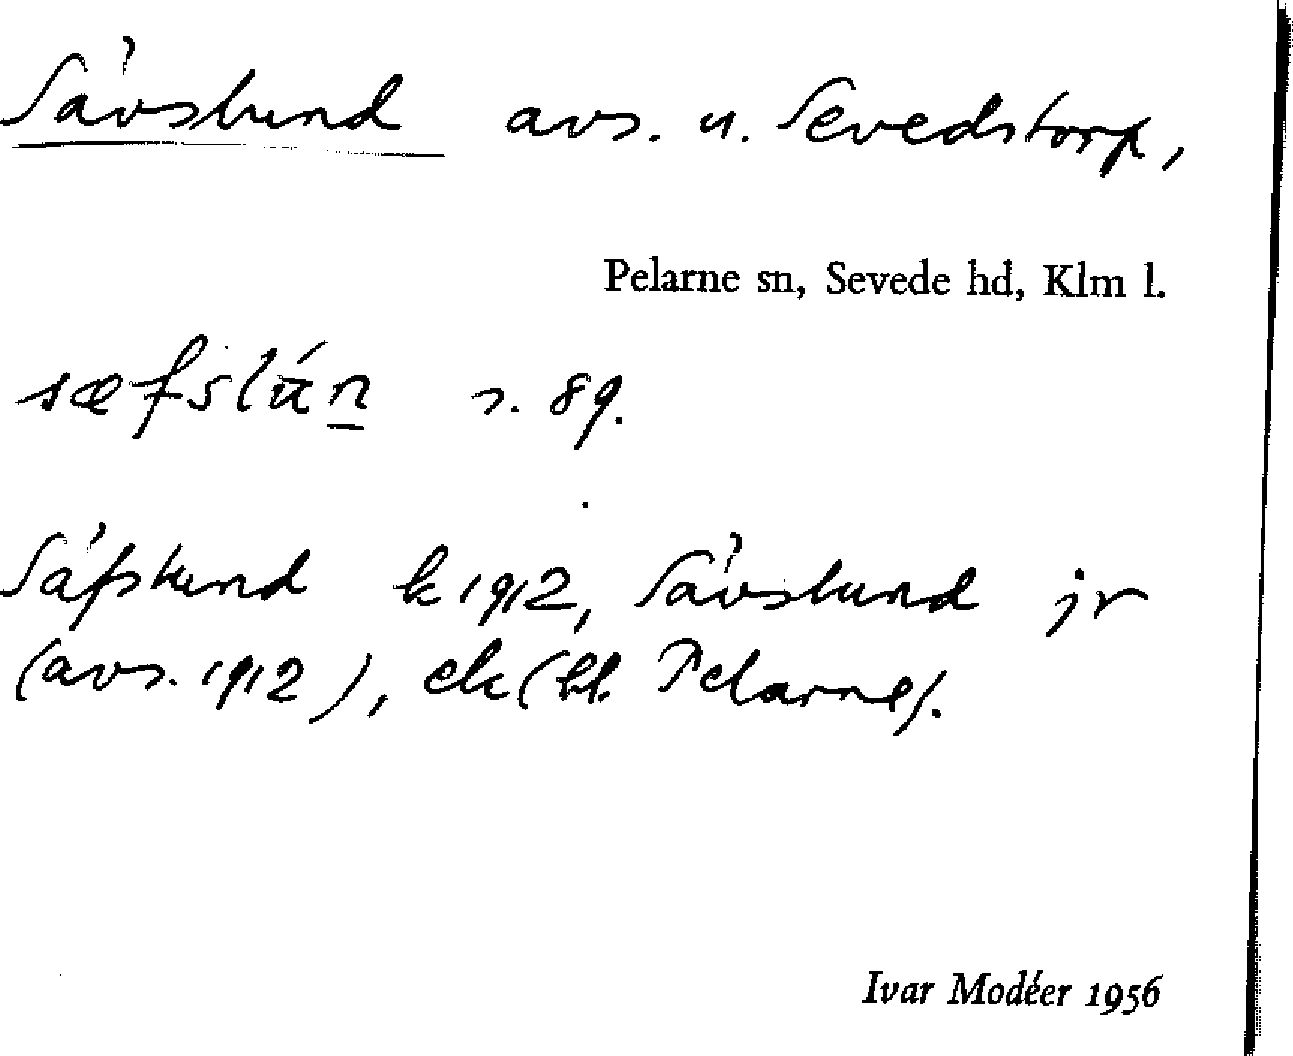 Sävslund avs. u. Sevedstorp,
Pelarne sn, Sevede hd, Klm l.
sæfslún s. 89.
Säfslund k 1912, Sävslund jr
(avs. 1912), ek (bl. Pelarne).
Ivar Modéer 1956